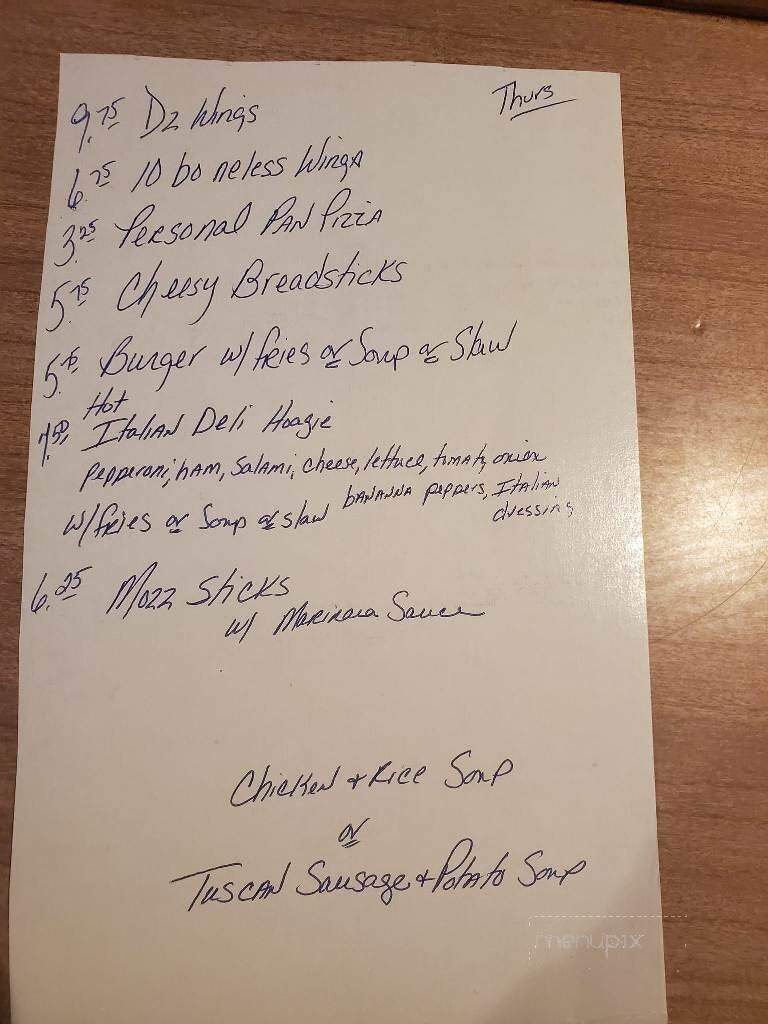 Thurs
9.75 Dz Wings
6.75 10 boneless Wings
3.25 Personal Pan Pizza
5.75 Cheesy Breadsticks
Burger w/ fries or Soup or Slaw
Hot
7.50 Italian Deli Hoagie
pepperoni, ham, Salami, cheese, lettuce, tomato, onion
bananna peppers, Italian
dressing
w/ fries or Soup or slaw
6.25 Mozz Sticks
w/ Marinara Sauce
Chicken + Rice Soup
or
Tuscan Sausage + Potato Soup
menupix